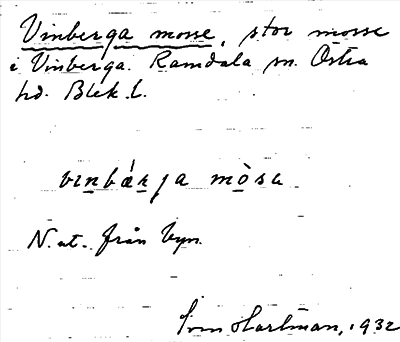 Vinberga mosse, stor mosse
i Vinberga. Ramdala sn. Östra
hd. Blek. l.
vinbærja mòsa
N. ut. från byn.
Sven Hartman, 1932